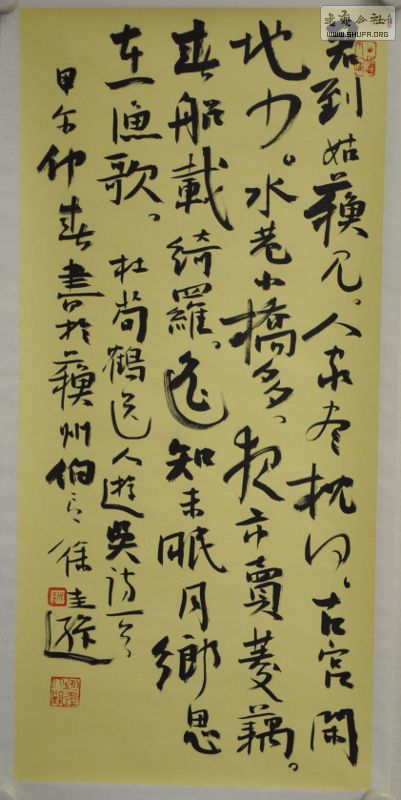 書藝公社
WWW.SHUFA.ORG
君到姑蘇見。人家尽枕河。古宮閑
地少。水巷小橋多。夜市賣菱藕。
春船載綺羅。遥知未眠月鄉思
在漁歌。杜荀鶴送人遊吳詩一首
甲午仲春書於蘇州 徐圭